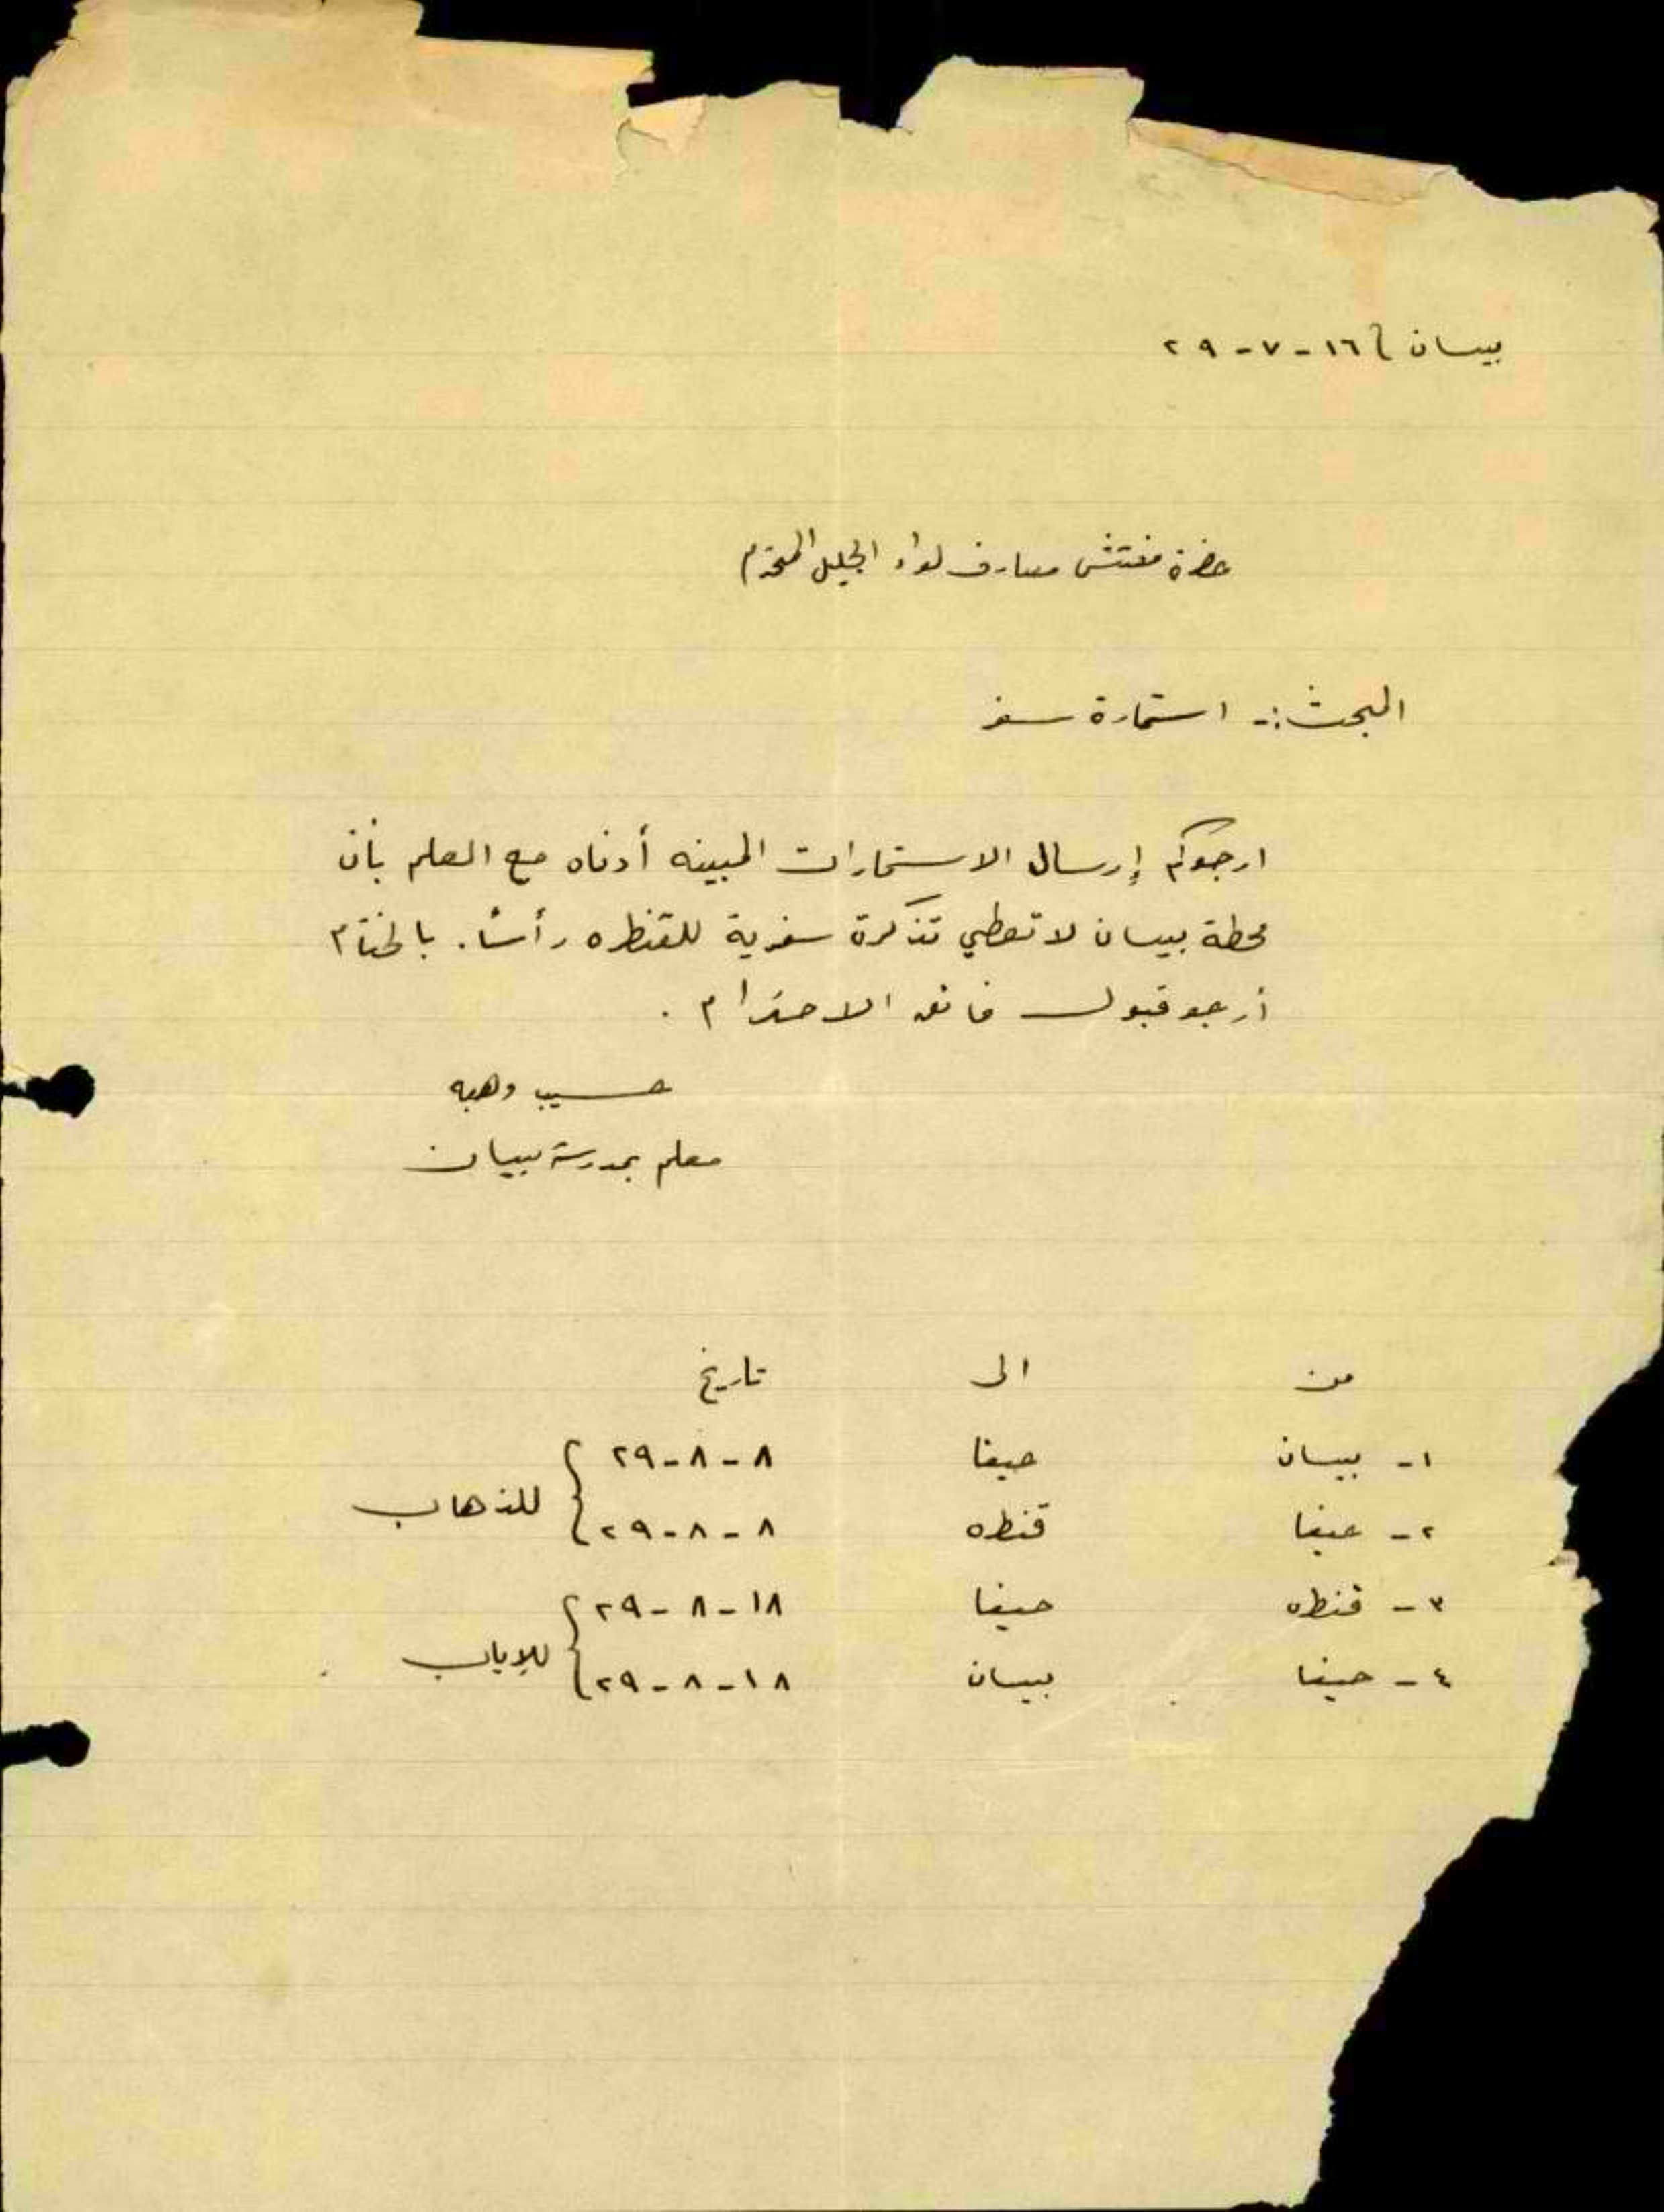 بيسان / ١٦-٧-٢٩
حضرة مفتش معارف لواء الجليل المحترم
البحث:- استمارة سفر
ارجوكم إرسال الاستمارات المبينه أدناه مع العلم بأن
محطة بيسان لا تعطي تذكرة سفرية للقنطره رأساً. بالختام
أرجو قبول فائق الاحترام.
حسيب وهبه
معلم بمدرسة بيسان
من الى تاريخ
١- بيسان حيفا ٨-٨-٢٩
للذهاب
٢- حيفا قنطره ٨-٨-٢٩
٣- قنطره حيفا ١٨-٨-٢٩
للإياب
٤- حيفا بيسان ١٨-٨-٢٩